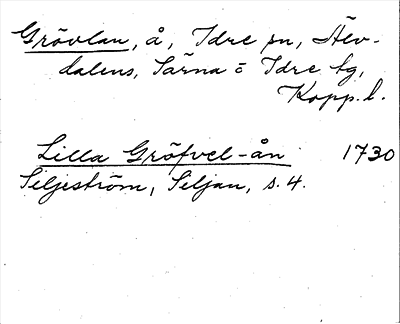 Grövlan, å, Idre sn, Älv-
dalens, Särna o Idre tg,
Kopp. l.
Lilla Gröfvel-ån 1730
Siljeström, Siljan, s. 4.